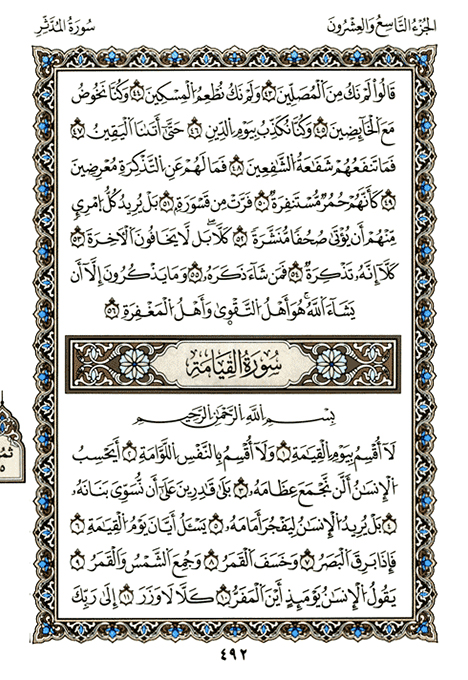 الجزء التاسع والعشرون
سورة المدثر
قَالُوا۟ لَمۡ نَكُ مِنَ ٱلۡمُصَلِّينَ ٤٣ وَلَمۡ نَكُ نُطۡعِمُ ٱلۡمِسۡكِينَ ٤٤ وَكُنَّا نَخُوضُ
مَعَ ٱلۡخَآئِضِينَ ٤٥ وَكُنَّا نُكَذِّبُ بِيَوۡمِ ٱلدِّينِ ٤٦ حَتَّىٰٓ أَتَىٰنَا ٱلۡيَقِينُ ٤٧
فَمَا تَنفَعُهُمۡ شَفَٰعَةُ ٱلشَّٰفِعِينَ ٤٨ فَمَا لَهُمۡ عَنِ ٱلتَّذۡكِرَةِ مُعۡرِضِينَ
٤٩ كَأَنَّهُمۡ حُمُرٞ مُّسۡتَنفِرَةٞ ٥٠ فَرَّتۡ مِن قَسۡوَرَةِۭ ٥١ بَلۡ يُرِيدُ كُلُّ ٱمۡرِيٕٖ
مِّنۡهُمۡ أَن يُؤۡتَىٰ صُحُفٗا مُّنَشَّرَةٗ ٥٢ كَلَّاۖ بَل لَّا يَخَافُونَ ٱلۡأٓخِرَةَ ٥٣
كَلَّآ إِنَّهُۥ تَذۡكِرَةٞ ٥٤ فَمَن شَآءَ ذَكَرَهُۥ ٥٥ وَمَا يَذۡكُرُونَ إِلَّآ أَن
يَشَآءَ ٱللَّهُۚ هُوَ أَهۡلُ ٱلتَّقۡوَىٰ وَأَهۡلُ ٱلۡمَغۡفِرَةِ ٥٦
سورة القيامة
بِسۡمِ ٱللَّهِ ٱلرَّحۡمَٰنِ ٱلرَّحِيمِ
لَآ أُقۡسِمُ بِيَوۡمِ ٱلۡقِيَٰمَةِ ١ وَلَآ أُقۡسِمُ بِٱلنَّفۡسِ ٱللَّوَّامَةِ ٢ أَيَحۡسَبُ
ٱلۡإِنسَٰنُ أَلَّن نَّجۡمَعَ عِظَامَهُۥ ٣ بَلَىٰ قَٰدِرِينَ عَلَىٰٓ أَن نُّسَوِّيَ بَنَانَهُۥ
٤ بَلۡ يُرِيدُ ٱلۡإِنسَٰنُ لِيَفۡجُرَ أَمَامَهُۥ ٥ يَسۡـَٔلُ أَيَّانَ يَوۡمُ ٱلۡقِيَٰمَةِ ٦
فَإِذَا بَرِقَ ٱلۡبَصَرُ ٧ وَخَسَفَ ٱلۡقَمَرُ ٨ وَجُمِعَ ٱلشَّمۡسُ وَٱلۡقَمَرُ ٩
يَقُولُ ٱلۡإِنسَٰنُ يَوۡمَئِذٍ أَيۡنَ ٱلۡمَفَرُّ ١٠ كَلَّا لَا وَزَرَ ١١ إِلَىٰ رَبِّكَ
٤٩٢